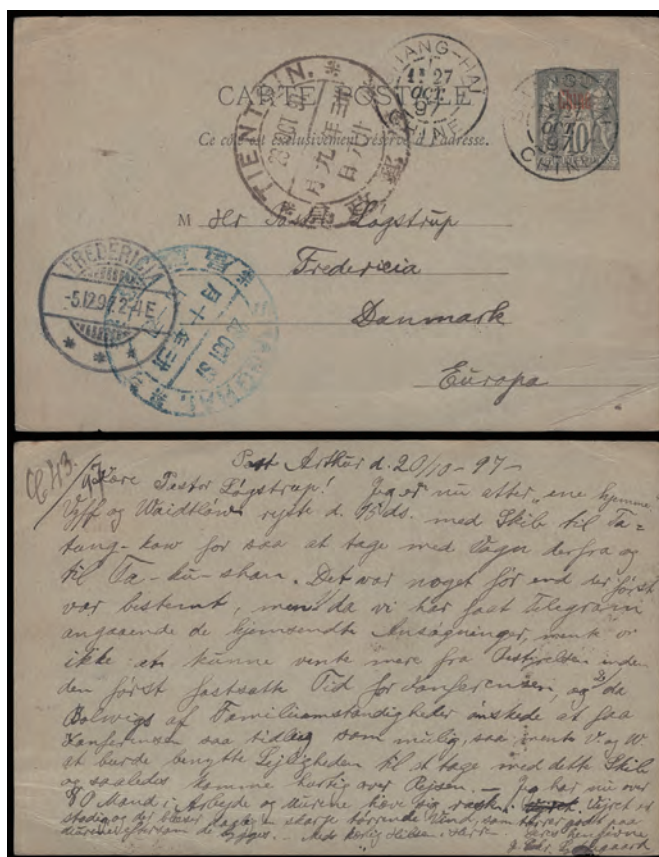 CARTE POSTALE
Ce côté est exclusivement réservé à l'adresse.
TIENTSIN.
OCT 97
SHANG-HAI
27
OCT
97
CHINE
Chine
SHANG-HAI
OCT
97
CHINE
10
M Hr Pastor Løgstrup
Fredericia
Danmark
Europa
FREDERICIA
-5.12.97. 2-4 E
SHANGHAI
OCT 97
Port Arthur d. 20/10-97-
Kjære Pastor Løgstrup! Jeg er nu atter "ene hjemme"
Vyff og Waidtløw rejste d. 15 ds. med Skib til Ta=
tung-kow for saa at tage med Vogn derfra og
til Ta-ku-shan. Det var noget før end der først
var bestemt, men da vi har faaet Telegram
angaaende de hjemsendte Ansøgninger, mente vi
ikke at kunne vente mere fra Bestyrelsen inden
den først fastsatte Tid for Konferensen, og da
Bolwigs af Familieomstændigheder ønskede at faa
Konferensen saa tidlig som mulig, saa mente V. og W.
at burde benytte Lejligheden til at tage med dette Skib
og saaledes komme hurtig over Rejsen. - Jeg har nu over
80 Mand i Arbejde og Murene hæve sig raskt. Vejret er
stadig og der blæser daglig en skarp tørrende Vind, som tørrer godt paa
Murene eftersom de bygges. - Med kærlig Hilsen